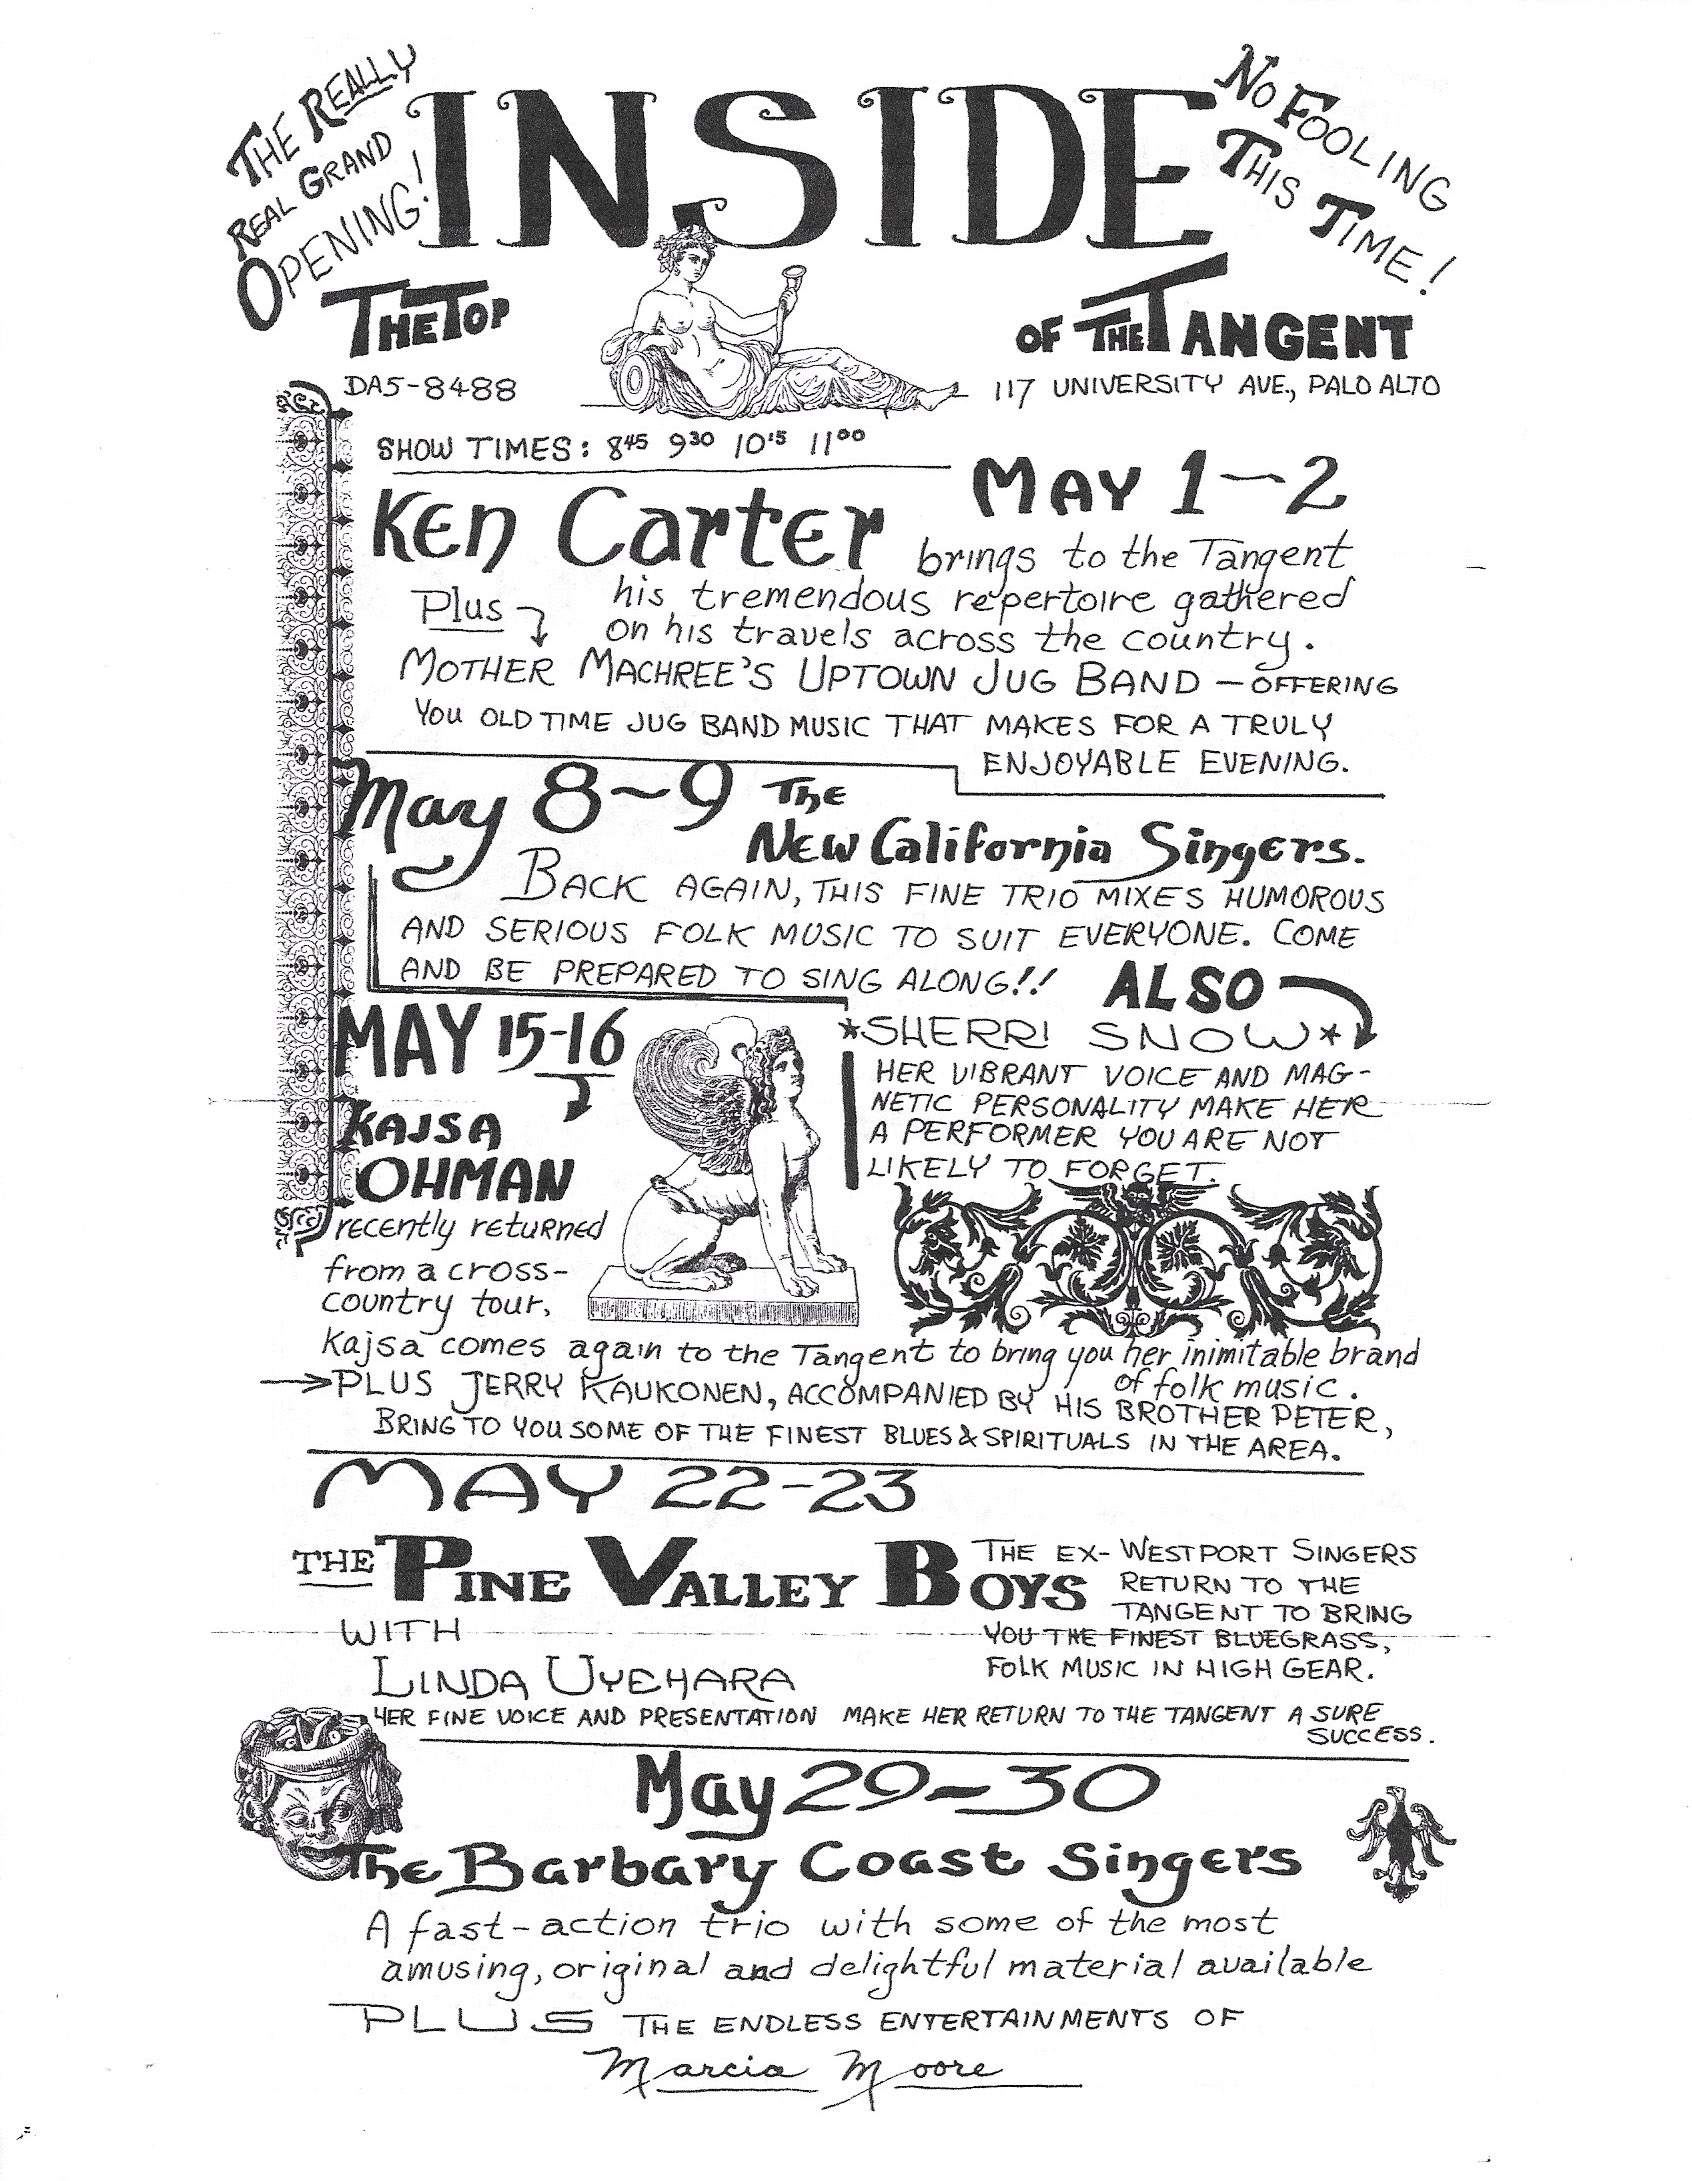 THE REALLY
REAL GRAND
OPENING!
INSIDE
NO FOOLING
THIS TIME!
THE TOP
OF THE TANGENT
DA5-8488
117 UNIVERSITY AVE., PALO ALTO
SHOW TIMES: 8 45 9 30 10 15 11 00
MAY 1-2
Ken Carter brings to the Tangent
his tremendous repertoire gathered
on his travels across the country.
Plus
MOTHER MACHREE'S UPTOWN JUG BAND - OFFERING
YOU OLD TIME JUG BAND MUSIC THAT MAKES FOR A TRULY
ENJOYABLE EVENING.
May 8~9 The
New California Singers.
BACK AGAIN, THIS FINE TRIO MIXES HUMOROUS
AND SERIOUS FOLK MUSIC TO SUIT EVERYONE. COME
AND BE PREPARED TO SING ALONG!!
ALSO
*SHERRI SNOW*
HER VIBRANT VOICE AND MAG-
NETIC PERSONALITY MAKE HER
A PERFORMER YOU ARE NOT
LIKELY TO FORGET.
MAY 15-16
KAJSA
OHMAN
recently returned
from a cross-
country tour,
Kajsa comes again to the Tangent to bring you her inimitable brand
of folk music.
→PLUS JERRY KAUKONEN, ACCOMPANIED BY HIS BROTHER PETER,
BRING TO YOU SOME OF THE FINEST BLUES & SPIRITUALS IN THE AREA.
MAY 22-23
THE PINE VALLEY BOYS
THE EX-WESTPORT SINGERS
RETURN TO THE
TANGENT TO BRING
YOU THE FINEST BLUEGRASS,
FOLK MUSIC IN HIGH GEAR.
WITH
LINDA UYEHARA
HER FINE VOICE AND PRESENTATION MAKE HER RETURN TO THE TANGENT A SURE
SUCCESS.
May 29-30
The Barbary Coast Singers
A fast-action trio with some of the most
amusing, original and delightful material available
PLUS THE ENDLESS ENTERTAINMENTS OF
Marcia Moore